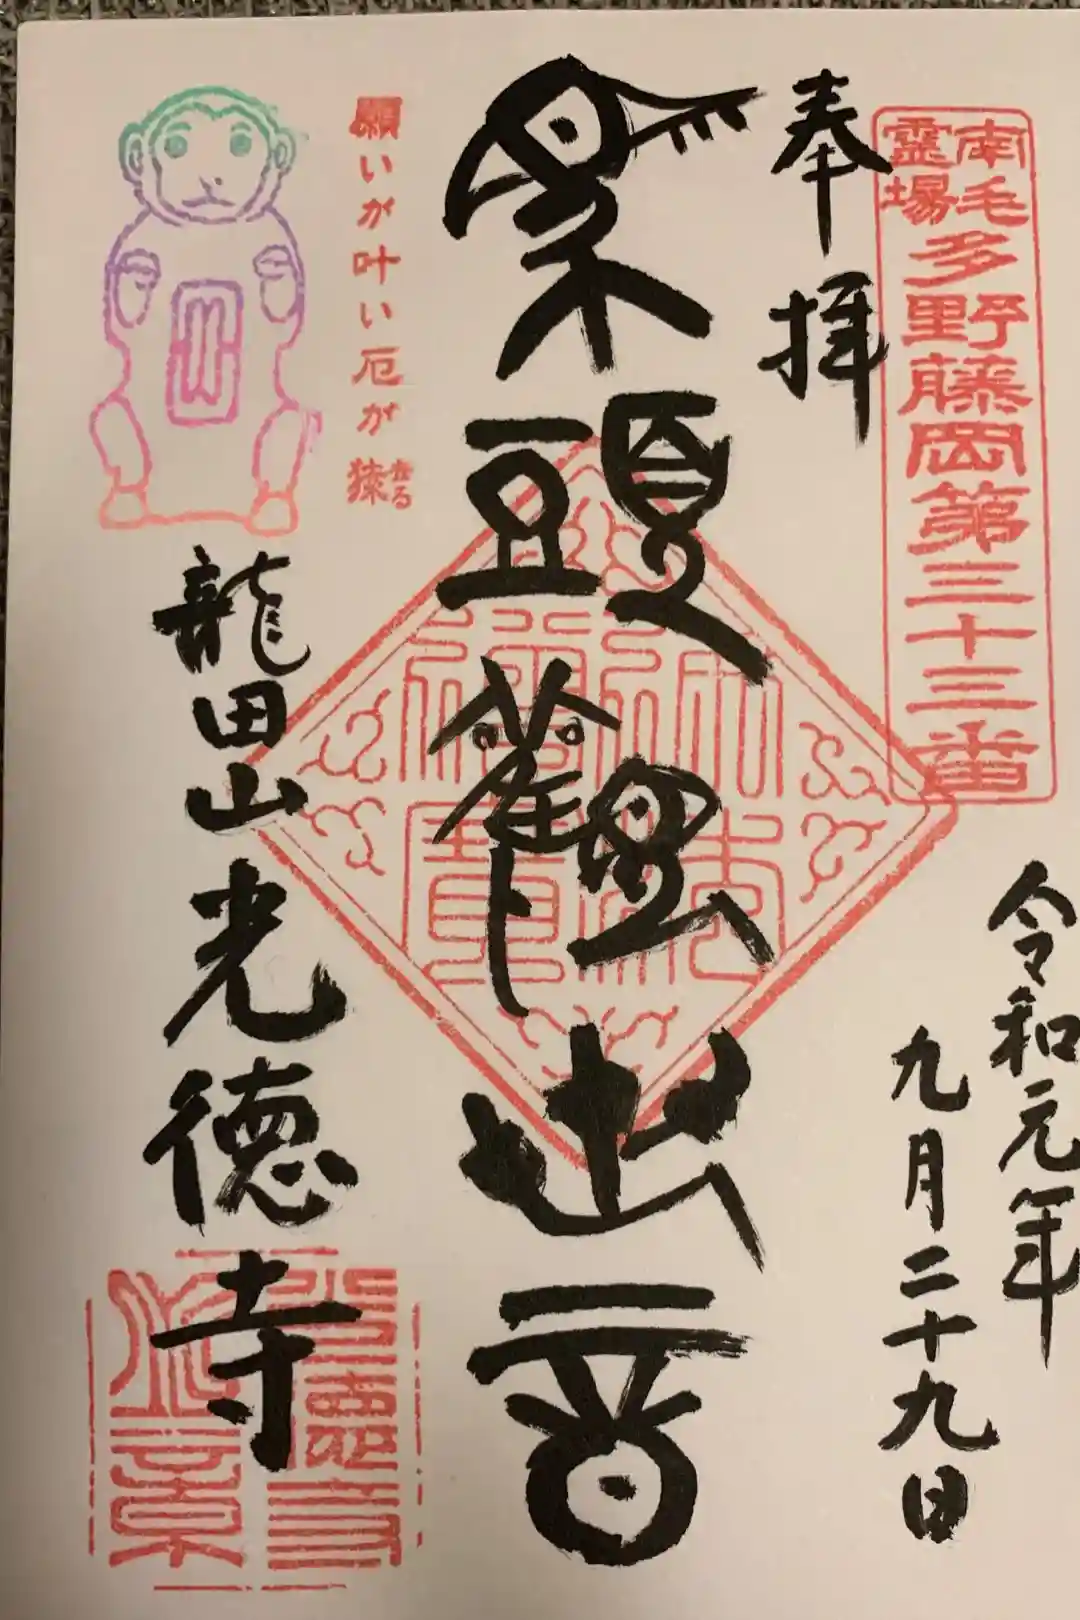 南毛霊場
多野藤岡第三十三番
奉拝
令和元年
九月二十九日
頭觀世音
佛法僧寶
願いが叶い厄が猿
去る
龍田山光徳寺